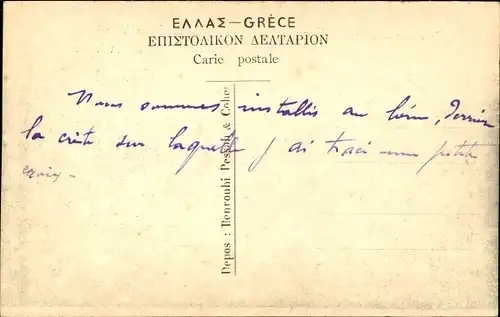 ΕΛΛΑΣ — GRÈCE
ΕΠΙΣΤΟΛΙΚΟΝ ΔΕΛΤΑΡΙΟΝ
Carte postale
Nous sommes installés au , derrière
la crête sur laquelle j'ai tracé une petite
croix -
Depos : Benroubi Pessah & Cohen